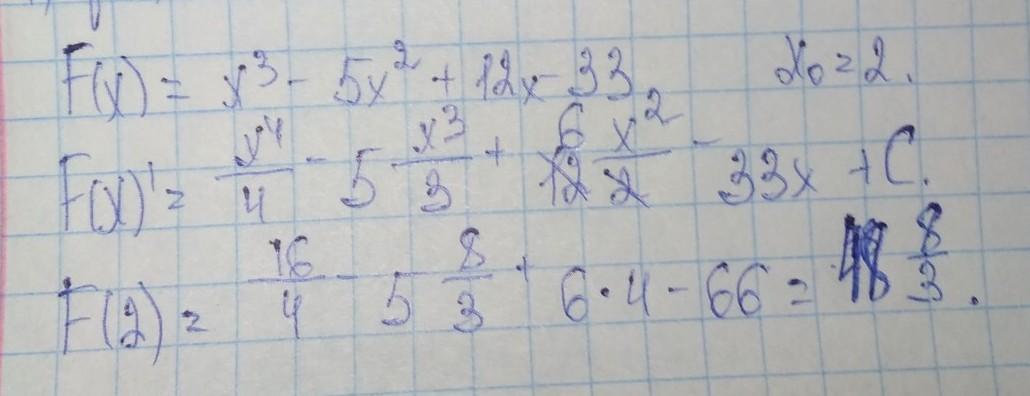 F(x) = x³ - 5x² + 12x - 33 x₀ = 2.
F(x)' = x⁴/4 - 5 x³/3 + 12 6 x²/2 - 33x + C.
F(2) = 16/4 - 5 8/3 + 6·4 - 66 = 48 8/3.